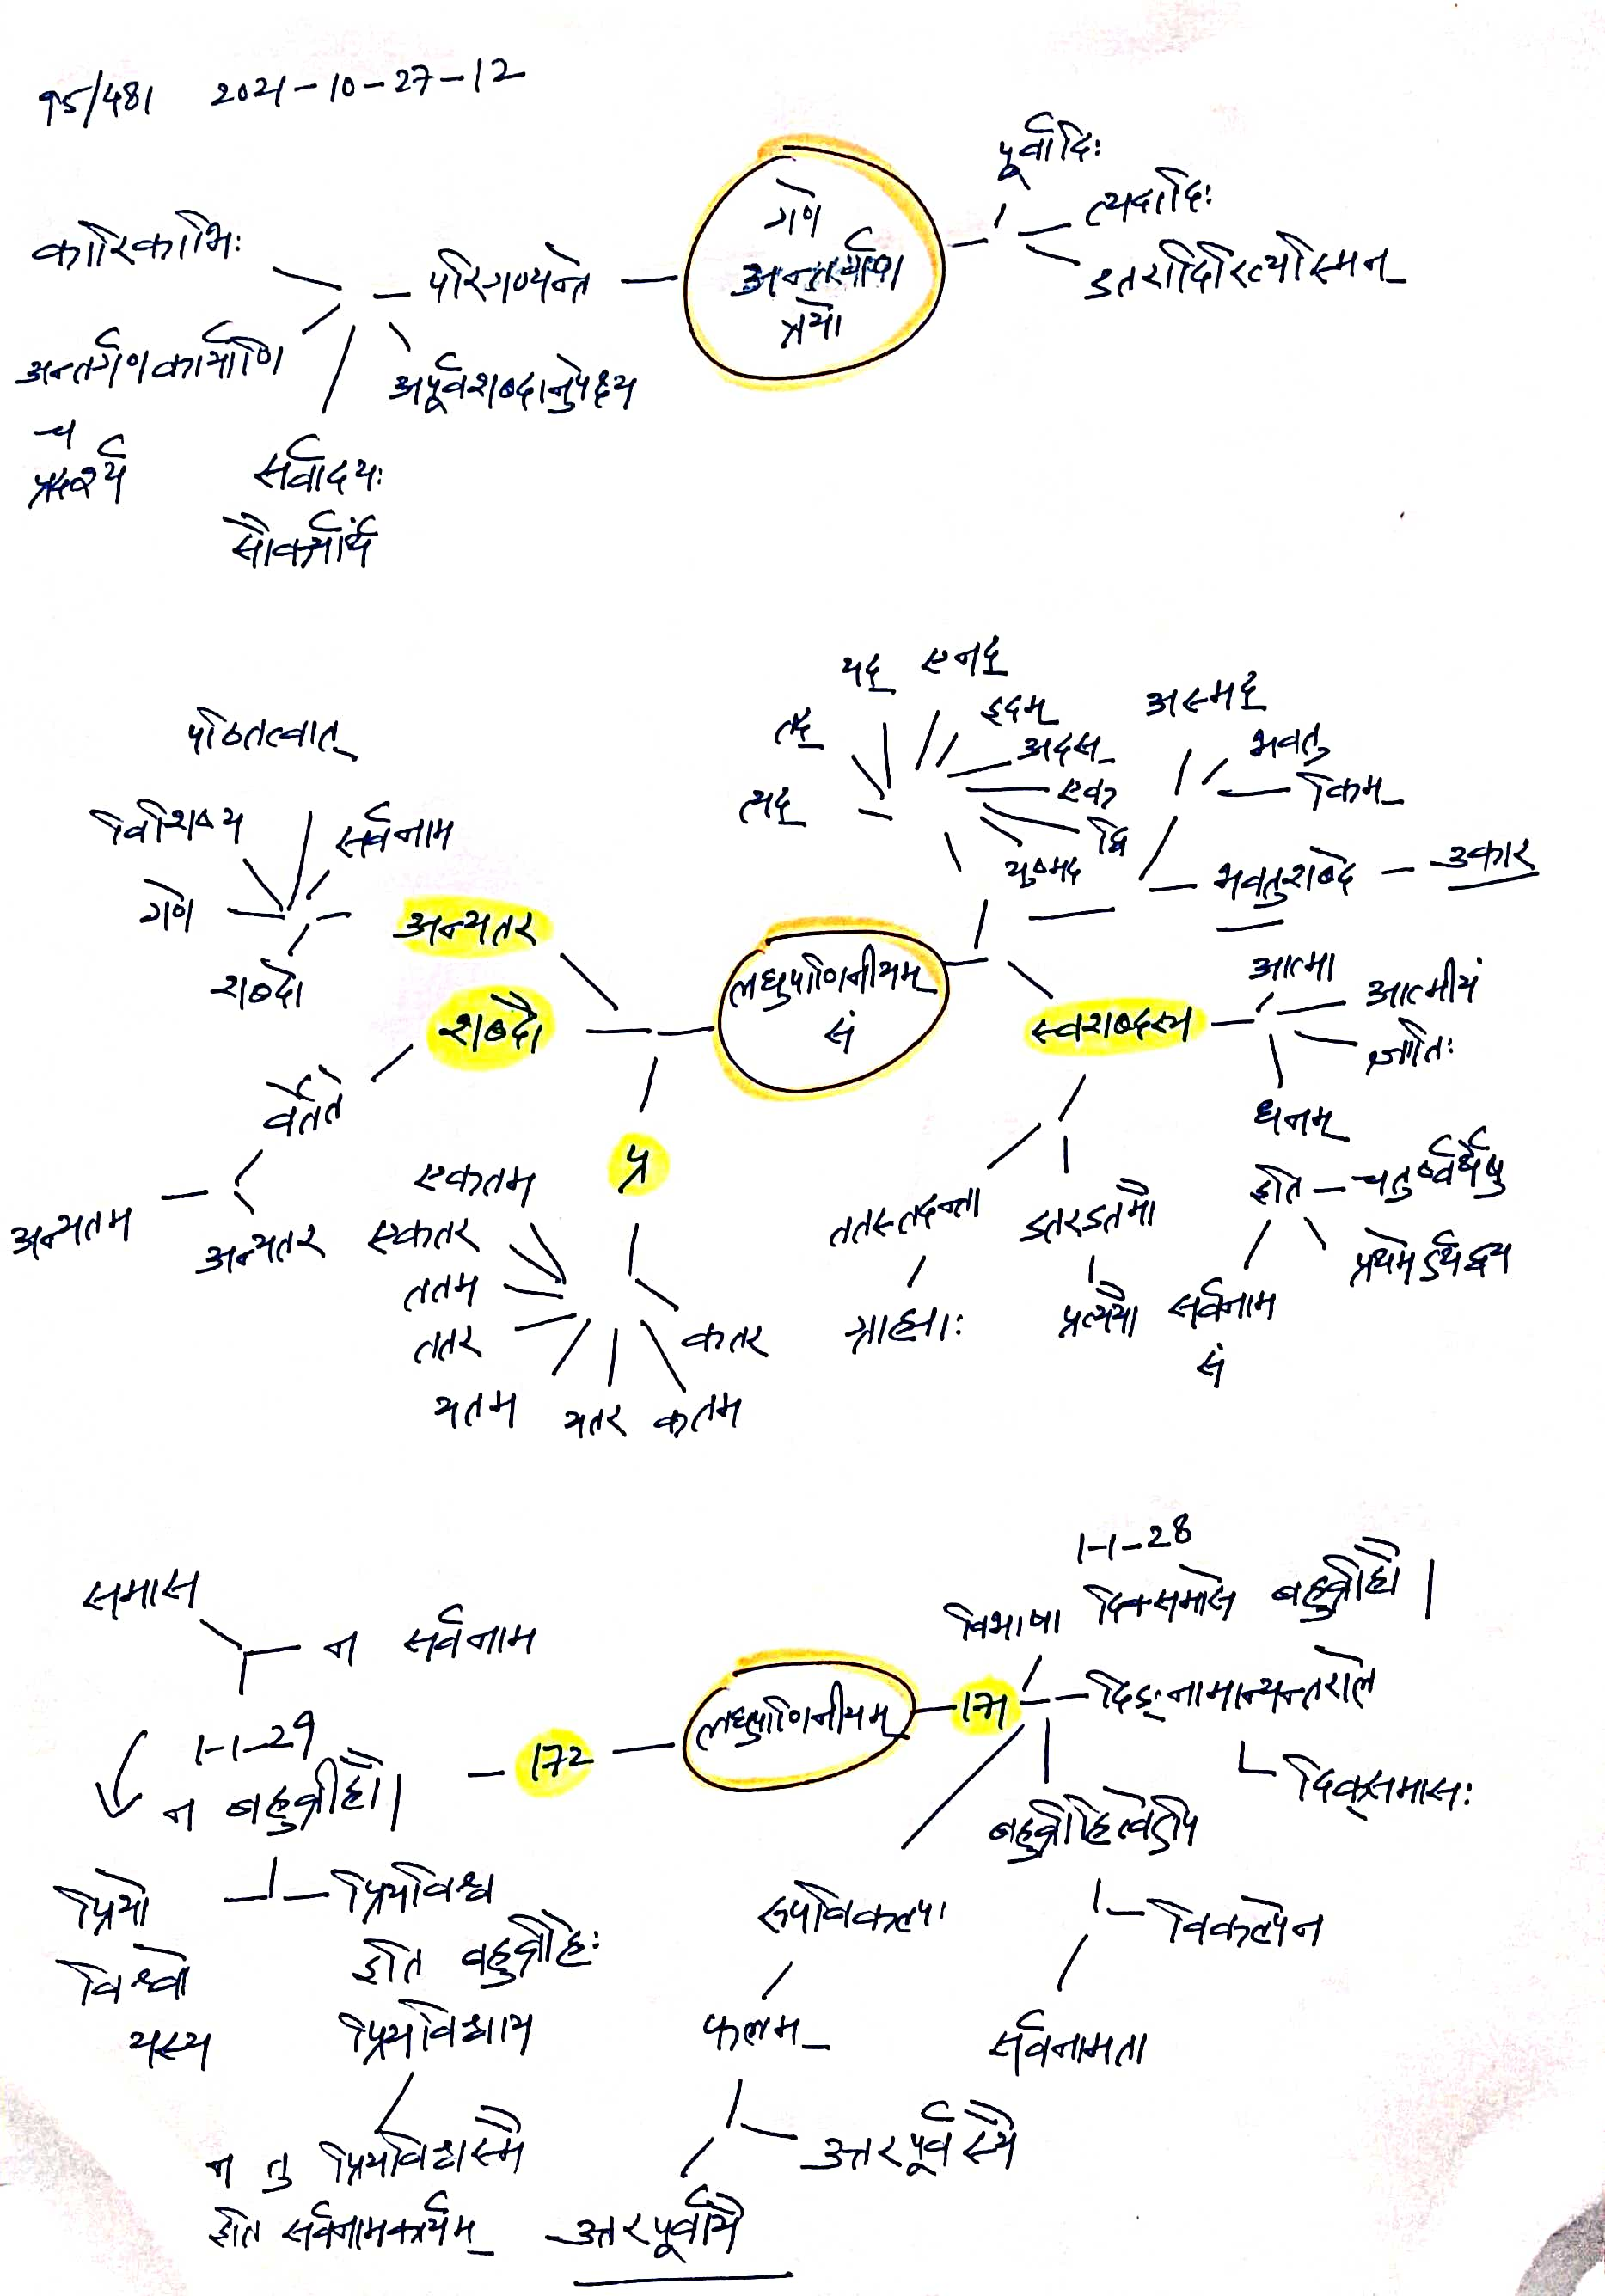 95/481 2021-10-27-12
पूर्वादिः
त्यदादिः
डतरादिरित्यस्मिन्
गणे
त्रयो
परिगण्यन्ते
कारिकाभिः
अन्तर्गणकार्याणि
च
अपूर्वशब्दानुपेक्ष्य
सर्वादयः
सौकर्यार्थं
यद्
एनद्
तद्
इदम्
अस्मद्
त्यद्
अदस्
भवतु
एक
किम्
द्वि
युष्मद्
भवतुशब्दे
उकार
पठितत्वात्
विशिष्य
सर्वनाम
गणे
शब्दो
अन्यतर
शब्दौ
लघुपाणिनीयम्
सं
स्वशब्दस्य
आत्मा
आत्मीयं
ज्ञातिः
धनम्
वर्तते
अन्यतम
अन्यतर
प्र
एकतम
एकतर
ततम
ततर
यतम
यतर
कतम
कतर
ततस्तदन्ता
ग्राह्याः
डतरडतमौ
प्रत्ययौ
इति
चतुर्ष्वर्थेषु
प्रथमेऽर्थद्वये
सर्वनाम
सं
1-1-28
विभाषा दिक्समासे बहुव्रीहौ |
समास
न सर्वनाम
लघुपाणिनीयम्
171
दिङ्नामान्यन्तराले
दिक्समासः
172
1-1-29
न बहुव्रीहौ |
बहुव्रीहित्वेऽपि
विकल्पेन
सर्वनामता
रूपविकल्पः
फलम्
उत्तरपूर्वस्यै
उत्तरपूर्वायै
प्रियो
विश्वो
यस्य
प्रियविश्व
इति बहुव्रीहिः
प्रियविश्वाय
न तु प्रियविश्वस्मै
इति सर्वनामकार्यम्